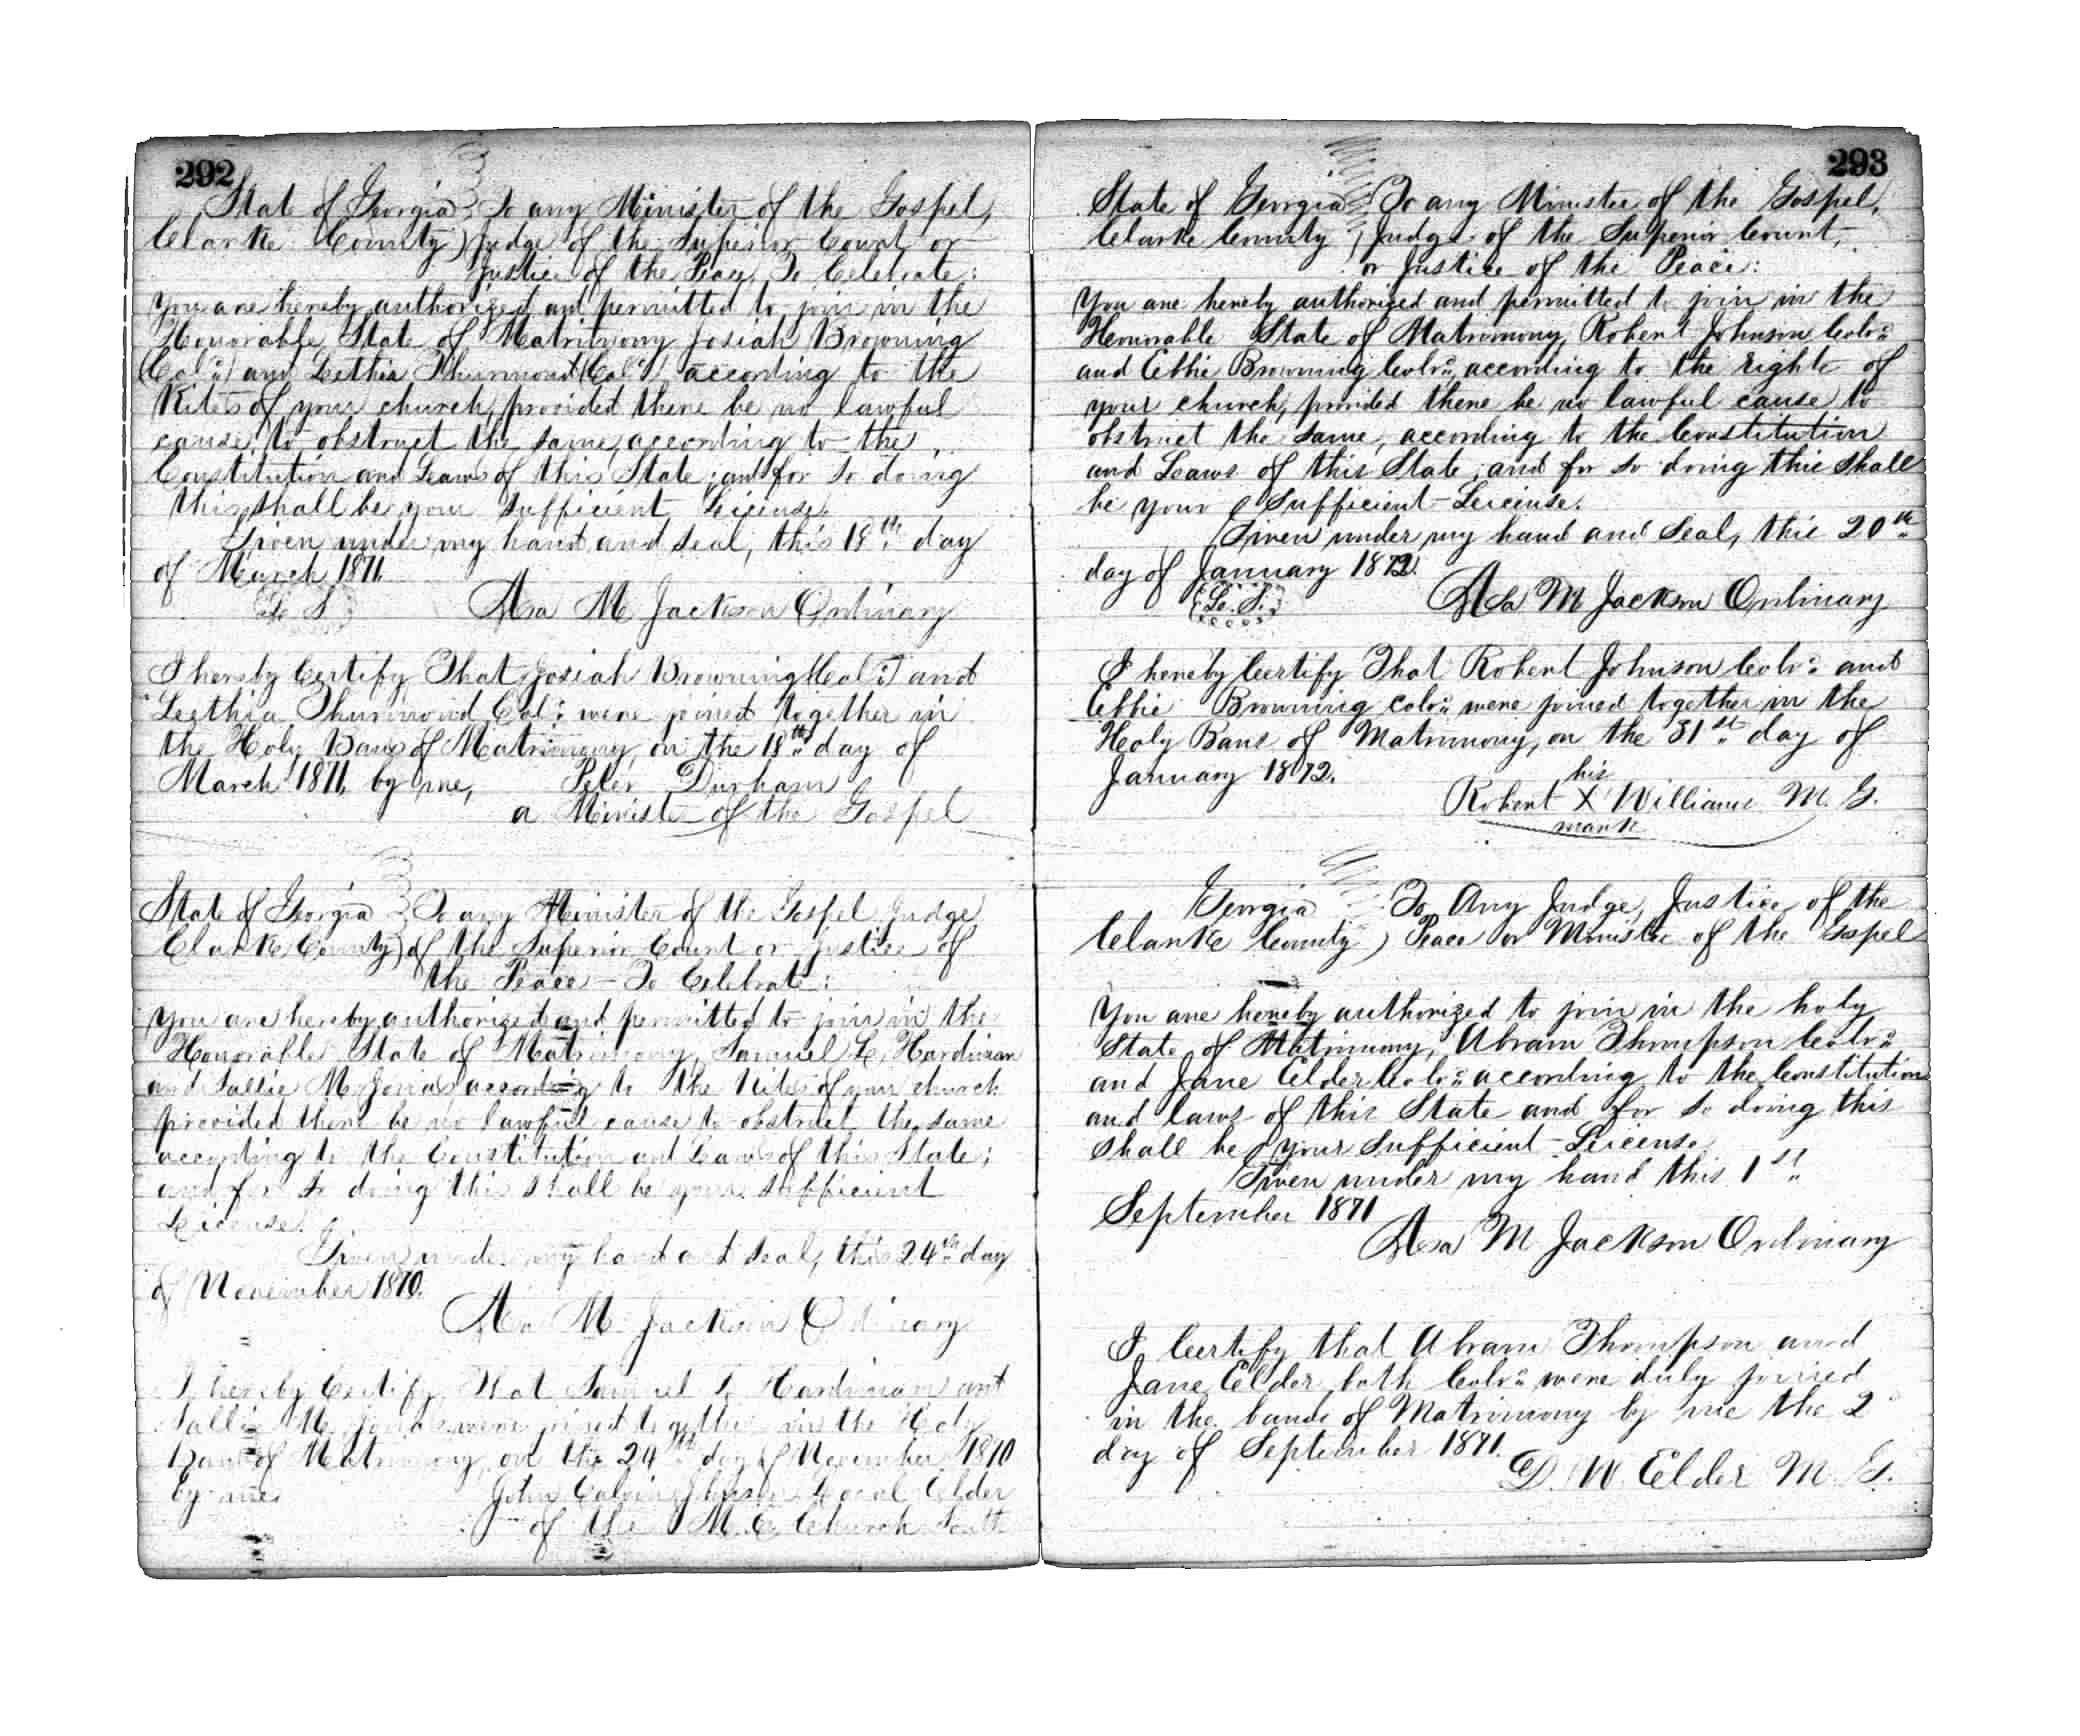 292
State of Georgia } To any Minister of the Gospel,
Clarke County } Judge of the Superior Court or
Justice of the Peace, To Celebrate:
You are hereby authorized and permitted to join in the
Honorable State of Matrimony Josiah Browning
(Cold) and Lethia Thurmond (Cold) according to the
Rites of your church, provided there be no lawful
cause to obstruct the same, according to the
Constitution and Laws of this State; and for so doing
this shall be your sufficient License.
Given under my hand and seal, this 18th day
of March 1871.
L. S. Asa M Jackson Ordinary
I hereby Certify That Josiah Browning (Cold) and
Lethia Thurmond Cold were joined together in
the Holy Bans of Matrimony, on the 18th day of
March 1871, by me, Peter Durham
a Minister of the Gospel
State of Georgia } To any Minister of the Gospel Judge
Clarke County } of the Superior Court or justice of
the Peace - To Celebrate:
You are hereby authorized and permitted to join in the
Honorable State of Matrimony, Samuel L. Hardiman
and Sallie M. Jones according to the Rites of your church
provided there be no lawful cause to obstruct the same
according to the Constitution and Laws of this State;
and for so doing this shall be your sufficient
License.
Given under my hand and seal, this 24th day
of November 1870.
Asa M. Jackson Ordinary
I hereby Certify That Samuel L. Hardiman and
Sallie M. Jones were joined together in the Holy
Bans of Matrimony on the 24th day of November 1870
by me. John Calvin Johnson Local Elder
of the M. E. Church South
293
State of Georgia } To any Minister of the Gospel,
Clarke County } Judge of the Superior Court,
or Justice of the Peace:
You are hereby authorized and permitted to join in the
Honorable State of Matrimony, Robert Johnson Cold
and Effie Browning Cold, according to the rights of
your church, provided there be no lawful cause to
obstruct the same, according to the Constitution
and Laws of this State; and for so doing this shall
be your sufficient License.
Given under my hand and Seal, this 20th
day of January 1872.
L. S. Asa M Jackson Ordinary
I hereby Certify That Robert Johnson Cold and
Effie Browning Cold were joined together in the
Holy Bans of Matrimony, on the 31st day of
January 1872.
his
Robert X Williams M. G.
mark
Georgia To Any Judge, Justice of the
Clarke County } Peace or Minister of the Gospel
You are hereby authorized to join in the holy
State of Matrimony, Abram Thompson Cold
and Jane Elder Cold according to the Constitution
and laws of this State and for so doing this
shall be your sufficient License
Given under my hand this 1st
September 1871
Asa M Jackson Ordinary
I certify that Abram Thompson and
Jane Elder both Cold were duly joined
in the bands of Matrimony by me the 2
day of September 1871.
D. W. Elder M. G.